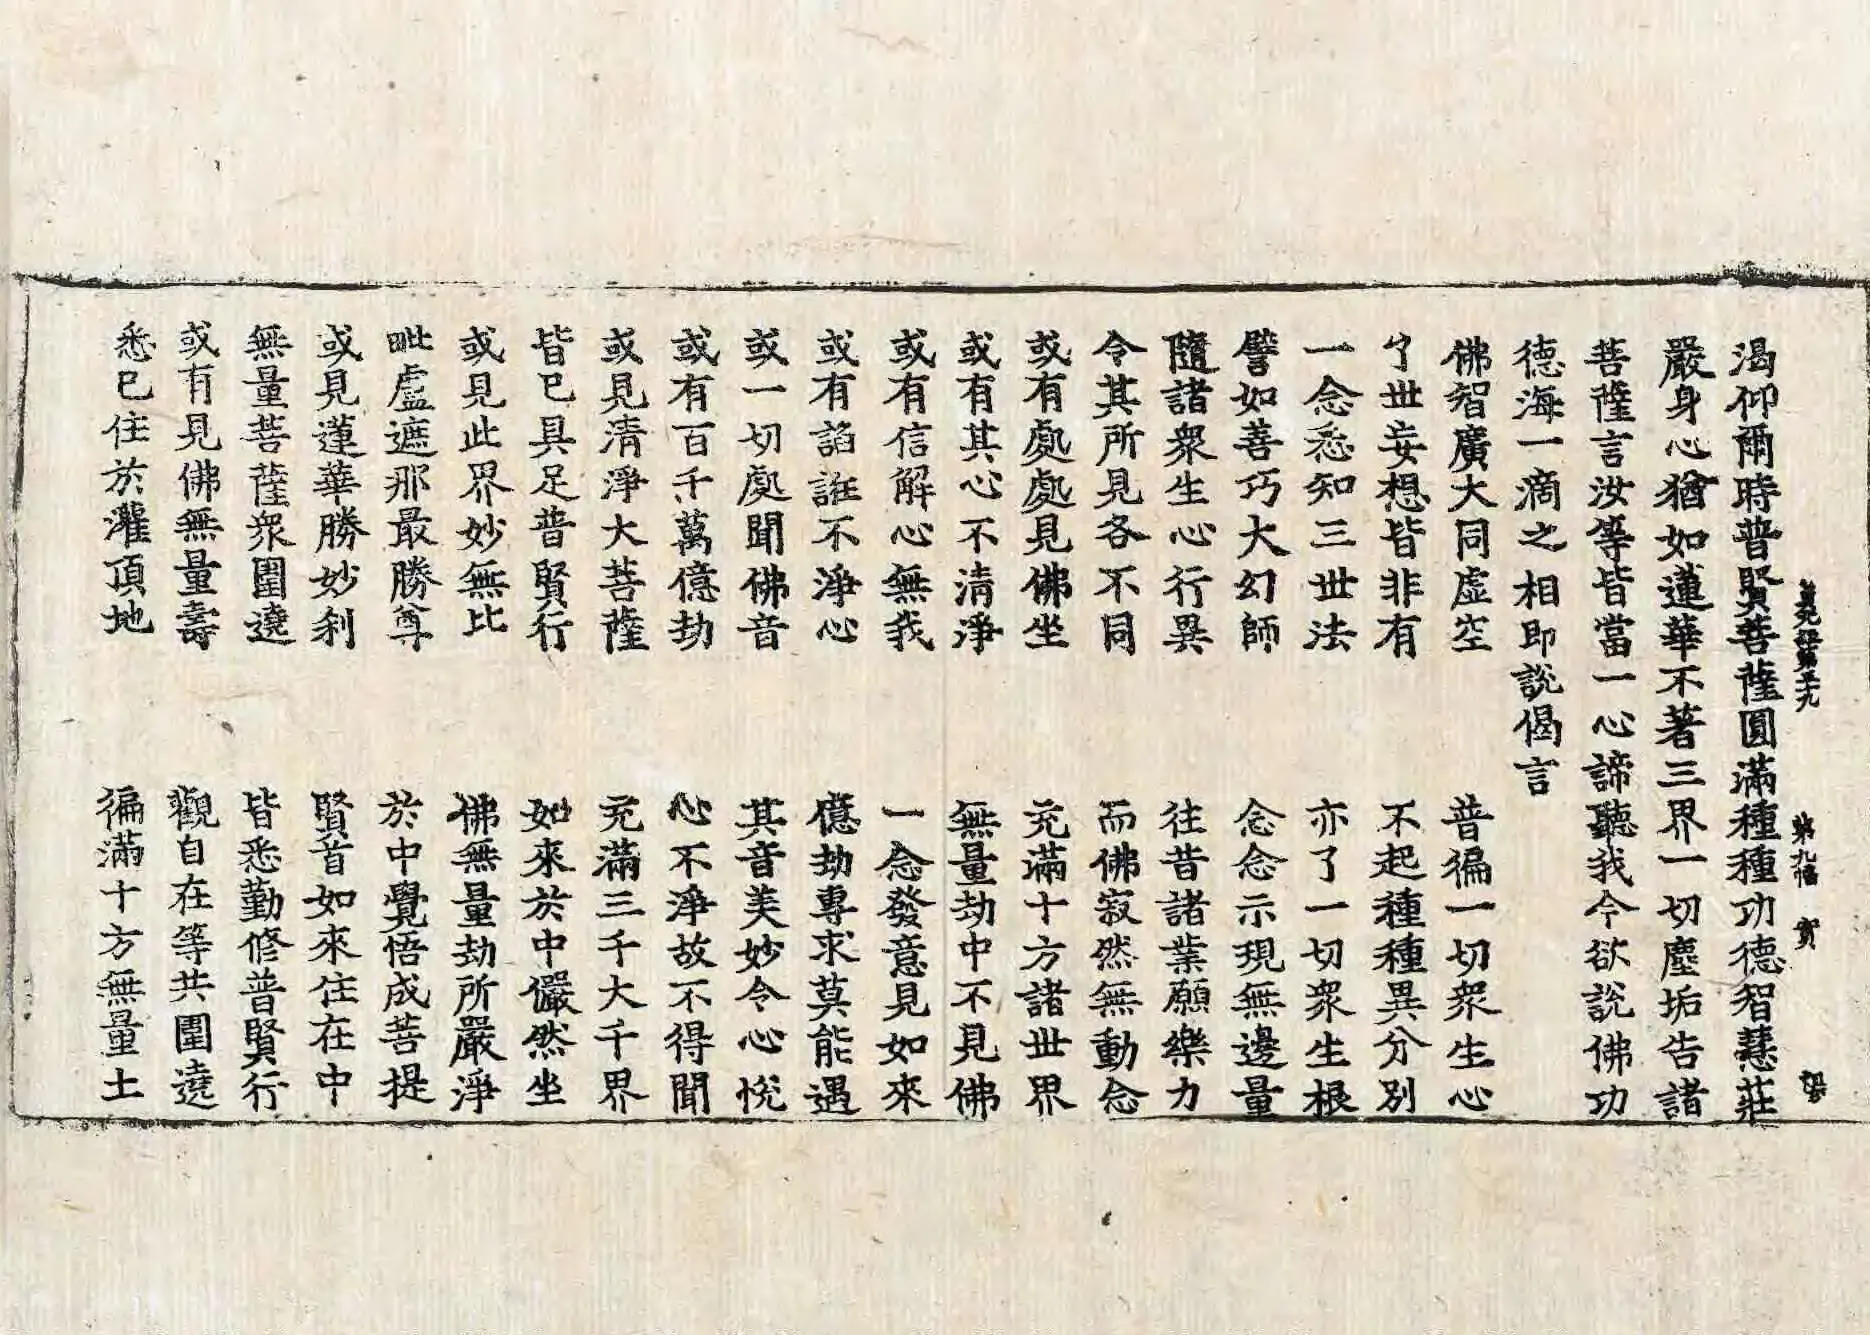 第九幅
渴仰爾時普賢菩薩圓滿種種功德智慧莊
嚴身心猶如蓮華不著三界一切塵垢告諸
菩薩言汝等皆當一心諦聽我今欲說佛功
德海一滴之相即說偈言
佛智廣大同虛空　普徧一切衆生心
了世妄想皆非有　不起種種異分別
一念悉知三世法　亦了一切衆生根
譬如善巧大幻師　念念示現無邊量
隨諸衆生心行異　往昔諸業願樂力
令其所見各不同　而佛寂然無動念
或有處處見佛坐　充滿十方諸世界
或有其心不清淨　無量劫中不見佛
或有信解心無我　一念發意見如來
或有諂誑不淨心　億劫專求莫能遇
或一切處聞佛音　其音美妙令心悅
或有百千萬億劫　心不淨故不得聞
或見清淨大菩薩　充滿三千大千界
皆已具足普賢行　如來於中儼然坐
或見此界妙無比　佛無量劫所嚴淨
毗盧遮那最勝尊　於中覺悟成菩提
或見蓮華勝妙刹　賢首如來住在中
無量菩薩衆圍遶　皆悉勤修普賢行
或有見佛無量壽　觀自在等共圍遶
悉已住於灌頂地　徧滿十方無量土